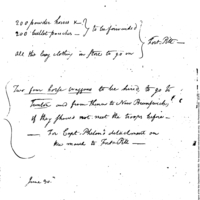 200 powder horns &
200 bullet pouches
} to be provided
all the Boy clothing in store to go on
} Fort Pitt—
Two four horse waggons to be hired to go to
and from thence to New Brunswick,
if they should not meet the troops before—
For Capt. detachment on
the march to Fort Pitt—
June 30